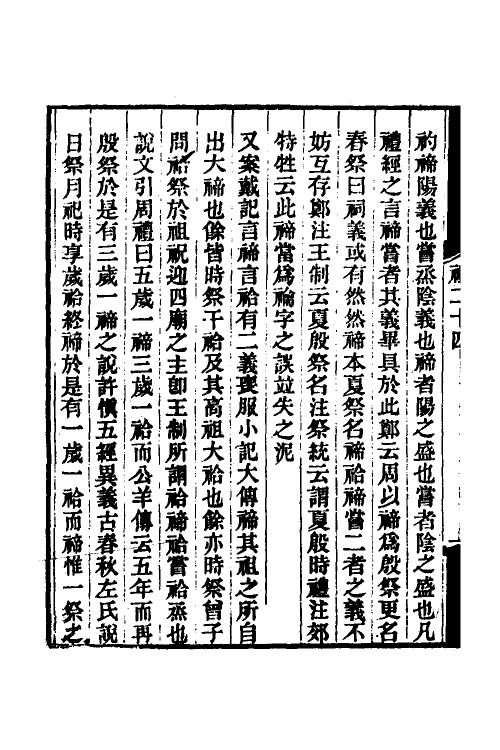 礿禘陽義也嘗烝陰義也禘者陽之盛也嘗者陰之盛也凡
禮經之言禘嘗者其義畢具於此鄭云周以禘爲殷祭更名
春祭曰祠義或有然然禘本夏祭名禘祫禘嘗二者之義不
妨互存鄭注王制云夏殷祭名注祭統云謂夏殷時禮注郊
特牲云此禘當爲禴字之誤竝失之泥
又案戴記言禘言祫有二義喪服小記大傳禘其祖之所自
出大禘也餘皆時祭干祫及其高祖大祫也餘亦時祭曾子
問祫祭於祖祝迎四廟之主卽王制所謂祫禘祫嘗祫烝也
說文引周禮曰五歲一禘三歲一祫而公羊傳云五年而再
殷祭於是有三歲一禘之說許愼五經異義古春秋左氏說
日祭月祀時享歲祫終禘於是有一歲一祫而禘惟一祭之
禮二十四